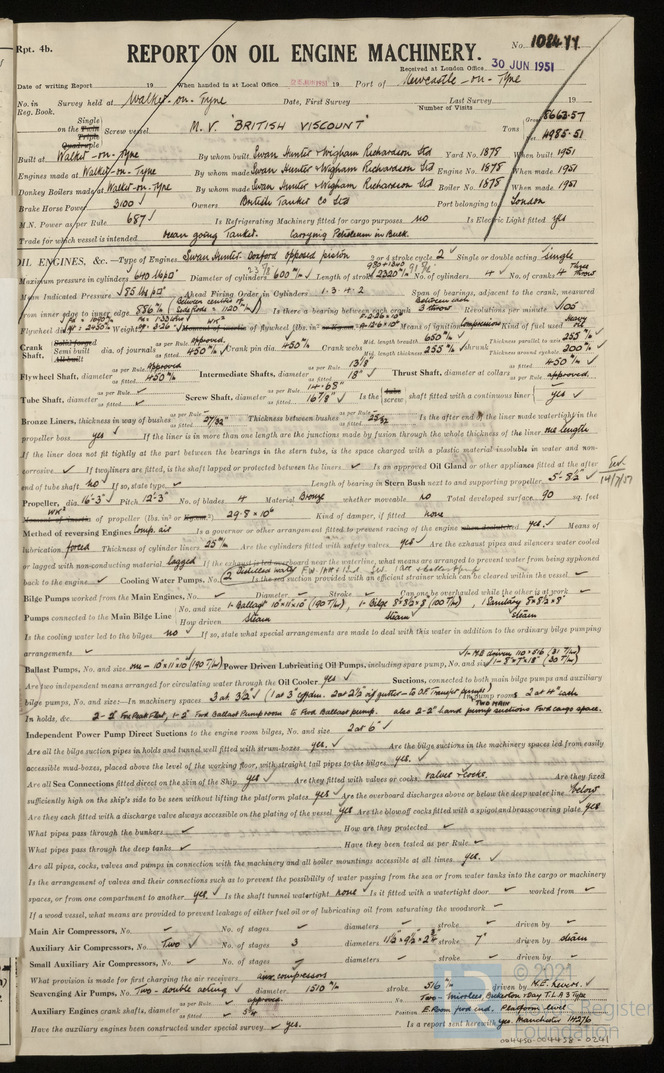 Rpt. 4b.
REPORT ON OIL ENGINE MACHINERY.
No. 102477
Received at London Office 30 JUN 1951
Date of writing Report 19 When handed in at Local Office 19 Port of Newcastle-on-Tyne
No. in Reg. Book. Survey held at Walker-on-Tyne Date, First Survey Last Survey 19
Number of Visits
Single on the Twin Triple Quadruple Screw vessel M.V. "BRITISH VISCOUNT" Tons Gross 8663.57 Net 4985.51
Built at Walker-on-Tyne By whom built Swan Hunter & Wigham Richardson Ltd Yard No. 1875 When built 1951
Engines made at Walker-on-Tyne By whom made Swan Hunter & Wigham Richardson Ltd Engine No. 1875 When made 1951
Donkey Boilers made at Walker-on-Tyne By whom made Swan Hunter & Wigham Richardson Ltd Boiler No. 1875 When made 1951
Brake Horse Power 3100 Owners British Tanker Co Ltd Port belonging to London
M.N. Power as per Rule 687 Is Refrigerating Machinery fitted for cargo purposes no Is Electric Light fitted yes
Trade for which vessel is intended ocean going Tanker. Carrying Petroleum in Bulk.
OIL ENGINES, &c.—Type of Engines Swan Hunter Doxford opposed piston 2 or 4 stroke cycle 2 Single or double acting Single
Maximum pressure in cylinders 640 lbs Diameter of cylinders 600 m/m Length of stroke 2320 m/m No. of cylinders 4 No. of cranks 4 Three Throw
Mean Indicated Pressure 85 lbs Ahead Firing Order in Cylinders 1-3-4-2 Span of bearings, adjacent to the crank, measured
from inner edge to inner edge Is there a bearing between each crank Between each 3 throw Revolutions per minute 105
Flywheel dia. Weight Moment of inertia of flywheel Means of ignition compression Kind of fuel used Heavy oil
Crank Shaft, Solid forged Semi built All built dia. of journals as per Rule approved as fitted 450 m/m Crank pin dia. 450 m/m Crank webs Mid. length breadth 650 m/m Mid. length thickness 255 m/m shrunk Thickness parallel to axis 255 m/m Thickness around eyehole 200 m/m
Flywheel Shaft, diameter as per Rule approved as fitted 450 m/m Intermediate Shafts, diameter as per Rule 13 1/8 as fitted 15" Thrust Shaft, diameter at collars as per Rule approved as fitted 450 m/m
Tube Shaft, diameter as per Rule as fitted Screw Shaft, diameter as per Rule 14.68" as fitted 16 7/8" Is the tube screw shaft fitted with a continuous liner yes
Bronze Liners, thickness in way of bushes as per Rule as fitted 27/32" Thickness between bushes as per Rule as fitted 25/32 Is the after end of the liner made watertight in the
propeller boss yes If the liner is in more than one length are the junctions made by fusion through the whole thickness of the liner one length
If the liner does not fit tightly at the part between the bearings in the stern tube, is the space charged with a plastic material insoluble in water and non-
corrosive If two liners are fitted, is the shaft lapped or protected between the liners Is an approved Oil Gland or other appliance fitted at the after
end of tube shaft no If so, state type Length of bearing in Stern Bush next to and supporting propeller 5'-8½"
Propeller, dia. 16'-3" Pitch 12'-3" No. of blades 4 Material Bronze whether moveable no Total developed surface 90 sq. feet
Moment of inertia of propeller (lbs. in² or Kg.cm²) 29.8 × 10⁶ Kind of damper, if fitted none
Method of reversing Engines Comp. air Is a governor or other arrangement fitted to prevent racing of the engine when declutched yes Means of
lubrication forced Thickness of cylinder liners 25 m/m Are the cylinders fitted with safety valves yes Are the exhaust pipes and silencers water cooled
or lagged with non-conducting material lagged If the exhaust is led overboard near the waterline, what means are arranged to prevent water from being syphoned
back to the engine Cooling Water Pumps, No. 2 Is the sea suction provided with an efficient strainer which can be cleared within the vessel
Bilge Pumps worked from the Main Engines, No. Diameter Stroke Can one be overhauled while the other is at work
Pumps connected to the Main Bilge Line No. and size 1-Ballast 10"×11"×10" (190 T/hr) 1-Bilge (100 T/hr), 1 Sanitary
How driven Steam Steam Steam
Is the cooling water led to the bilges no If so, state what special arrangements are made to deal with this water in addition to the ordinary bilge pumping
arrangements
Ballast Pumps, No. and size one-10"×11"×10" (190 T/hr) Power Driven Lubricating Oil Pumps, including spare pump, No. and size
Are two independent means arranged for circulating water through the Oil Cooler yes Suctions, connected to both main bilge pumps and auxiliary
bilge pumps, No. and size:—In machinery spaces 3 at 3½" In pump room 2 at 4" each
In holds, &c. 2-2" Fore Peak Flat, 1-2" Fwd Ballast Pumproom to Fwd Ballast pump. also 2-2" hand pump suctions Fwd cargo space.
Independent Power Pump Direct Suctions to the engine room bilges, No. and size TWO MAIN 2 at 6"
Are all the bilge suction pipes in holds and tunnel well fitted with strum-boxes yes. Are the bilge suctions in the machinery spaces led from easily
accessible mud-boxes, placed above the level of the working floor, with straight tail pipes to the bilges yes.
Are all Sea Connections fitted direct on the skin of the Ship yes Are they fitted with valves or cocks valves & cocks. Are they fixed
sufficiently high on the ship's side to be seen without lifting the platform plates yes Are the overboard discharges above or below the deep water line below
Are they each fitted with a discharge valve always accessible on the plating of the vessel yes Are the blow off cocks fitted with a spigot and brass covering plate yes
What pipes pass through the bunkers How are they protected
What pipes pass through the deep tanks Have they been tested as per Rule
Are all pipes, cocks, valves and pumps in connection with the machinery and all boiler mountings accessible at all times yes.
Is the arrangement of valves and their connections such as to prevent the possibility of water passing from the sea or from water tanks into the cargo or machinery
spaces, or from one compartment to another yes. Is the shaft tunnel watertight none Is it fitted with a watertight door worked from
If a wood vessel, what means are provided to prevent leakage of either fuel oil or of lubricating oil from saturating the woodwork
Main Air Compressors, No. No. of stages diameters stroke driven by
Auxiliary Air Compressors, No. Two No. of stages 3 diameters 11½"×9½"×2¾" stroke 7" driven by steam
Small Auxiliary Air Compressors, No. No. of stages diameters stroke driven by
What provision is made for first charging the air receivers aux. compressors
Scavenging Air Pumps, No. Two-double acting diameter 1510 m/m stroke 516 m/m driven by M.E. levers.
Auxiliary Engines crank shafts, diameter as per Rule approved. as fitted No. Two-Mirrlees, Bickerton & Day T.L.A 3 Type
Position E. Room fwd end. Platform level
Have the auxiliary engines been constructed under special survey yes. Is a report sent herewith yes. Manchester 14276
© 2021
Lloyd's Register
Foundation
004450-004458-0241